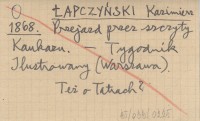 O ŁAPCZYŃSKI Kazimierz
1868. Przejazd przez szczyty
Kaukazu. — Tygodnik
Ilustrowany (Warszawa).
Też o Tatrach?